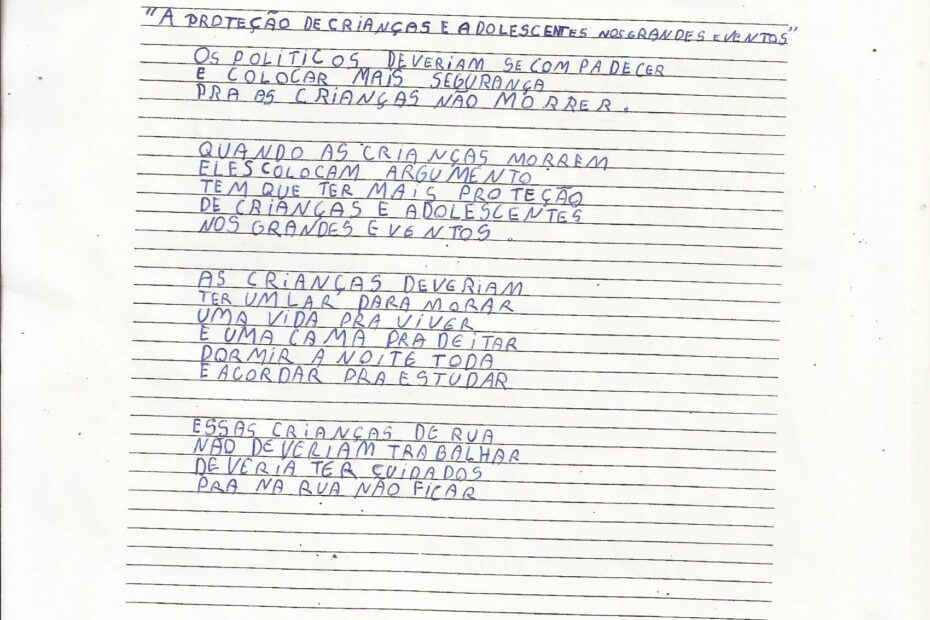 "A PROTEÇÃO DE CRIANÇAS E ADOLESCENTES NOS GRANDES EVENTOS"
OS POLÍTICOS DEVERIAM SE COMPADECER
E COLOCAR MAIS SEGURANÇA
PRA AS CRIANÇAS NÃO MORRER.
QUANDO AS CRIANÇAS MORREM
ELES COLOCAM ARGUMENTO
TEM QUE TER MAIS PROTEÇÃO
DE CRIANÇAS E ADOLESCENTES
NOS GRANDES EVENTOS.
AS CRIANÇAS DEVERIAM
TER UM LAR PARA MORAR
UMA VIDA PRA VIVER
E UMA CAMA PRA DEITAR
DORMIR A NOITE TODA
E ACORDAR PRA ESTUDAR
ESSAS CRIANÇAS DE RUA
NÃO DEVERIAM TRABALHAR
DEVERIA TER CUIDADOS
PRA NA RUA NÃO FICAR